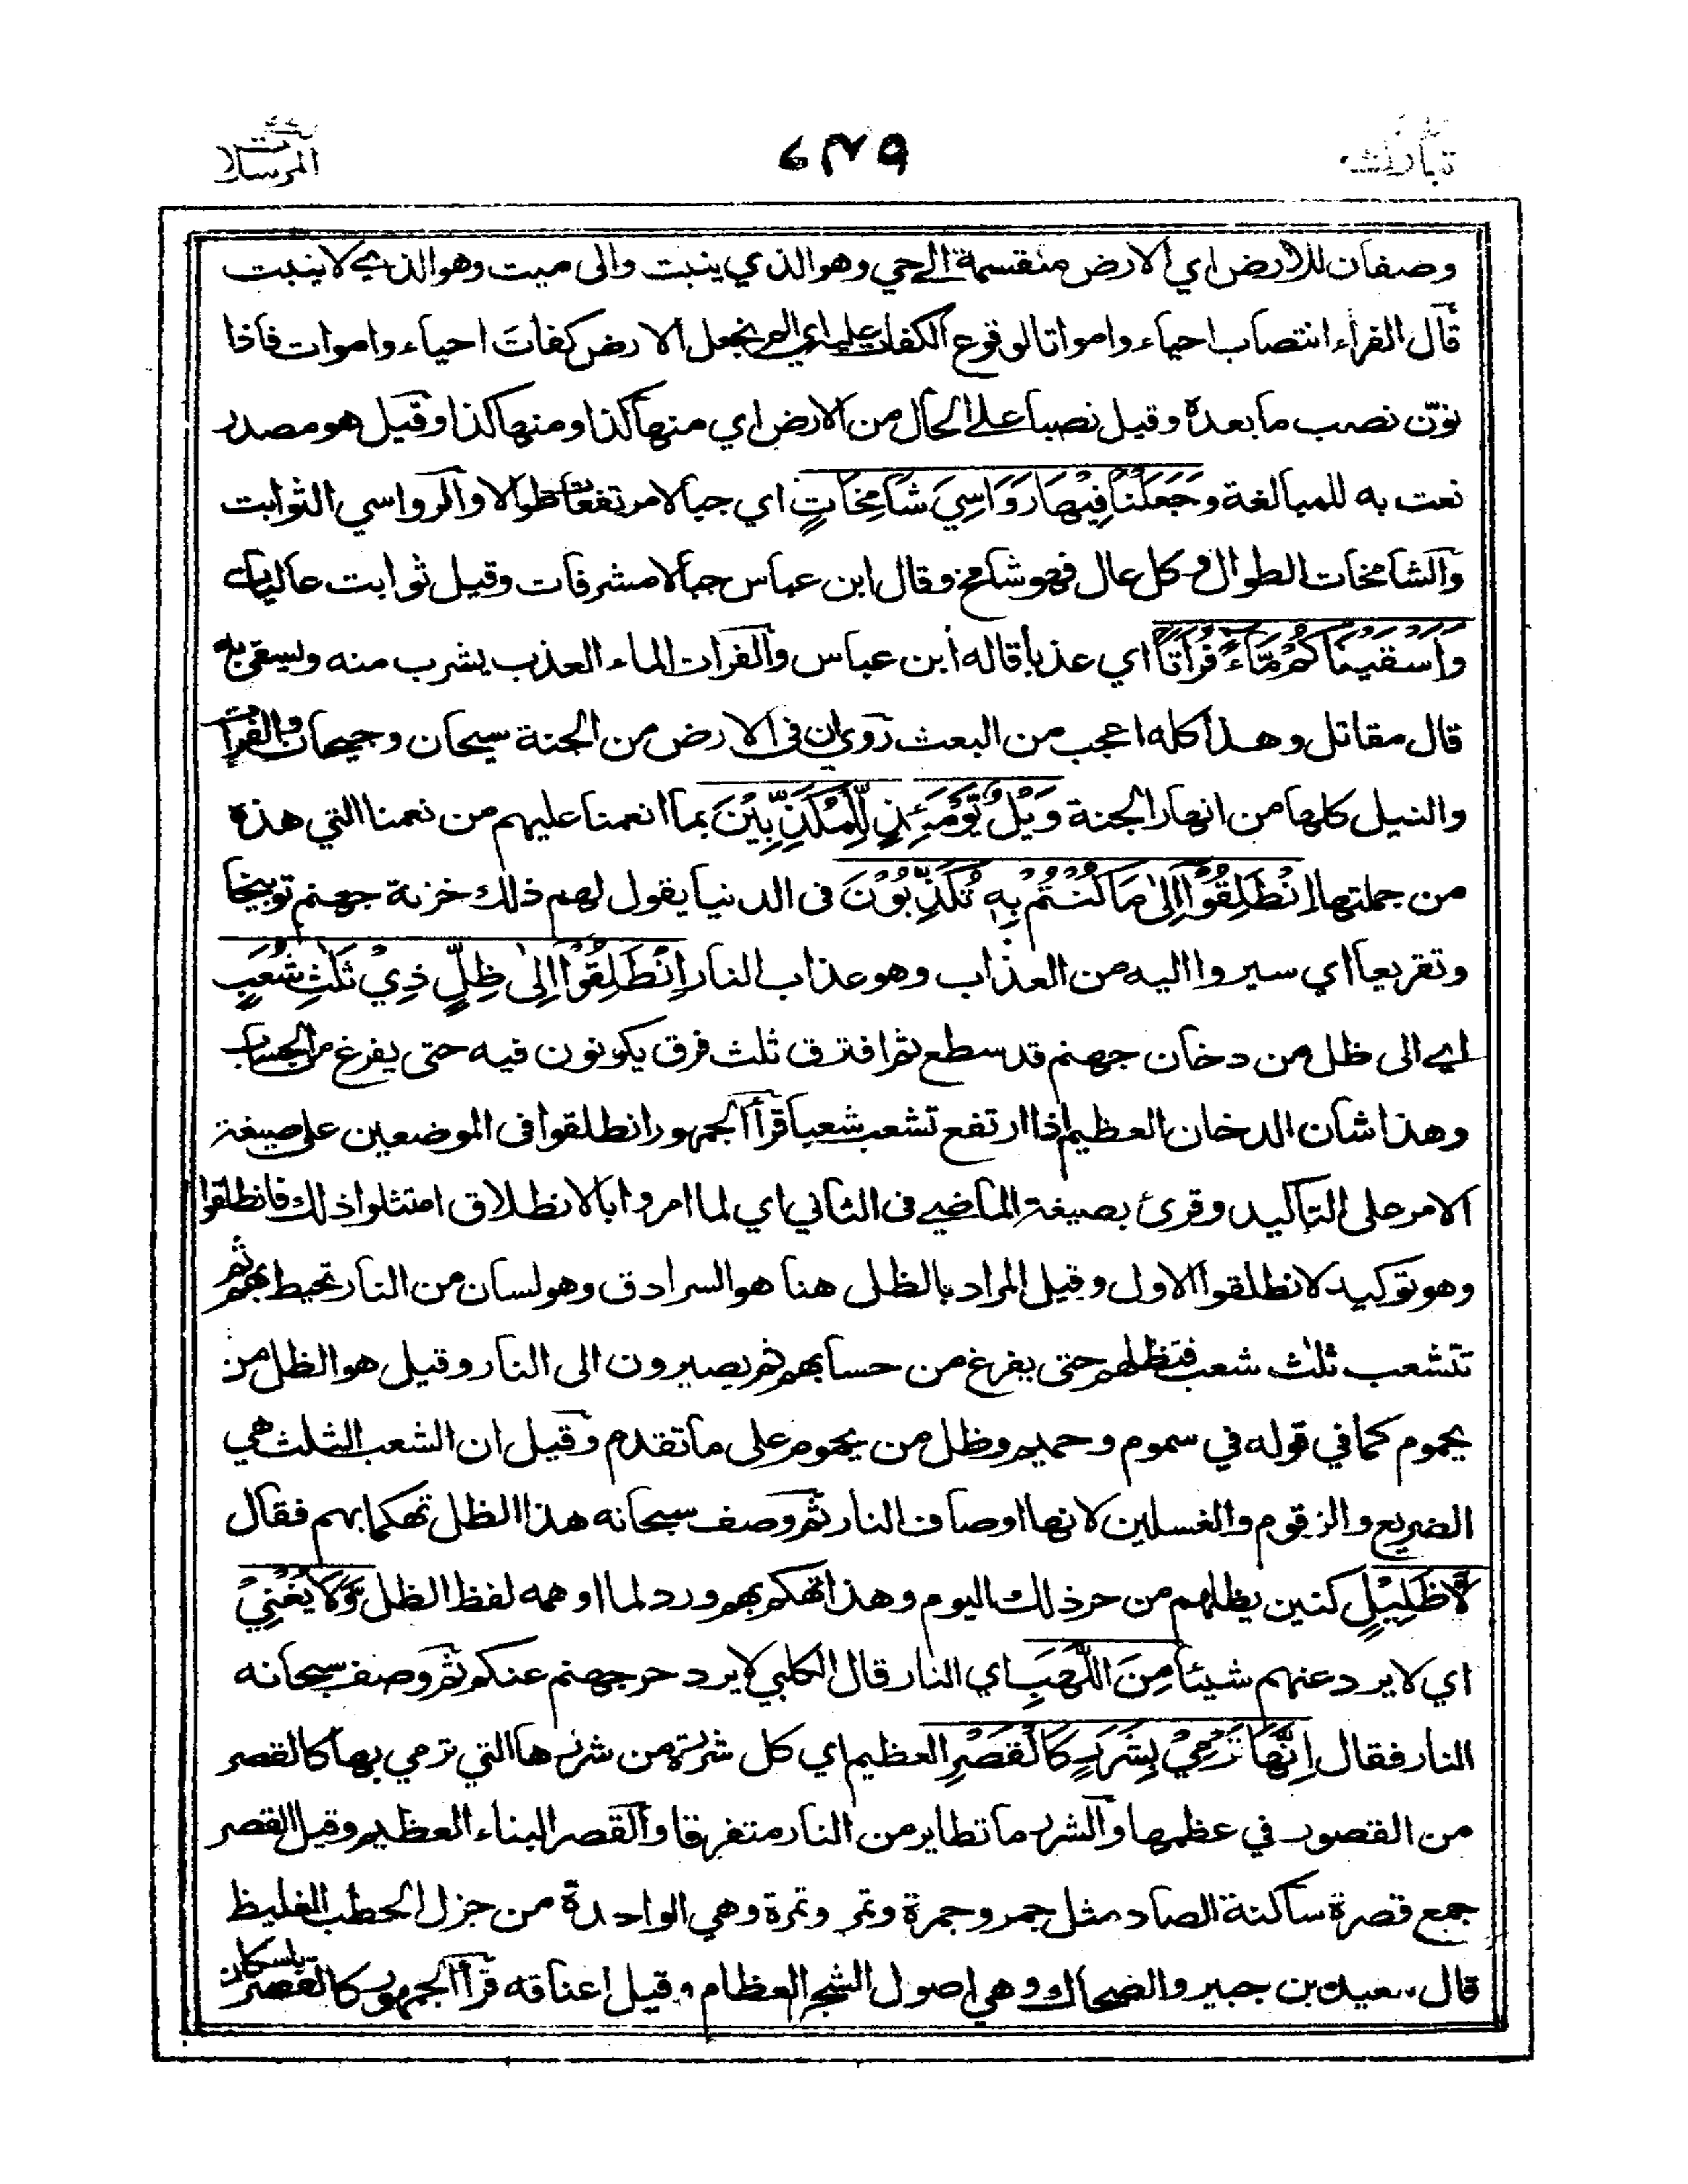 تبارك
المرسلات
وصفان للارض اي الارض منقسمة الى حي وهو الذي ينبت والى ميت وهو الذي لا ينبت
قال الفراء انتصاب احياء وامواتا لوقوع الكفات عليه اي الم نجعل الارض كفات احياء واموات فاذا
نوّن نصب ما بعده وقيل نصبا على الحال من الارض اي منها كذا ومنها كذا وقيل هو مصدر
نعت به للمبالغة وَجَعَلْنَا فِيْهَا رَوَاسِيَ شَامِخَاتٍ اي جبالا مرتفعات طوالا والرواسي الثوابت
والشامخات الطوال وكل عال فهو شامخ وقال ابن عباس جبالا مشرفات وقيل ثوابت عاليات
وَاَسْقَيْنَاكُمْ مَّآءً فُرَاتًا اي عذبا قاله ابن عباس والفرات الماء العذب يشرب منه ويسقى به
قال مقاتل وهذا كله اعجب من البعث روي ان فى الارض من الجنة سيحان وجيحان والفرات
والنيل كلها من انهار الجنة وَيْلٌ يَّوْمَئِذٍ لِّلْمُكَذِّبِيْنَ بما انعمنا عليهم من نعمنا التي هذه
من جملتها اِنْطَلِقُوْا اِلىٰ مَا كُنْتُمْ بِهٖ تُكَذِّبُوْنَ فى الدنيا يقول لهم ذلك خزنة جهنم توبيخا
وتقريعا اي سيروا اليه من العذاب وهو عذاب النار اِنْطَلِقُوْا اِلىٰ ظِلٍّ ذِيْ ثَلٰثِ شُعَبٍ
اي الى ظل من دخان جهنم قد سطع ثم افترق ثلث فرق يكونون فيه حتى يفرغ من الحساب
وهذا شان الدخان العظيم اذا ارتفع تشعب شعبا قرأ الجمهور انطلقوا فى الموضعين على صيغة
الامر على التاكيد وقرئ بصيغة الماضي فى الثاني اي لما امروا بالانطلاق امتثلوا ذلك فانطلقوا
وهو توكيد لانطلقوا الاول وقيل المراد بالظل هنا هو السرادق وهو لسان من النار تحيط بهم ثم
تتشعب ثلٰث شعب فتظلهم حتى يفرغ من حسابهم ثم يصيرون الى النار وقيل هو الظل من
يحموم كما في قوله في سموم وحميم وظل من يحموم على ما تقدم وقيل ان الشعب الثلث هي
الضريع والزقوم والغسلين لانها اوصاف النار ثم وصف سبحانه هذا الظل تهكما بهم فقال
لَّا ظَلِيْلٍ كنين يظلهم من حر ذلك اليوم وهذا تهكم بهم ورد لما اوهمه لفظ الظل وَّلَا يُغْنِيْ
اي لا يرد عنهم شيئا مِنَ اللَّهَبِ اي النار قال الكلبي لا يرد حر جهنم عنكم ثم وصف سبحانه
النار فقال اِنَّهَا تَرْمِيْ بِشَرَرٍ كَالْقَصْرِ العظيم اي كل شررة من شررها التي ترمي بها كالقصر
من القصور في عظمها والشرر ما تطاير من النار متفرقا والقصر البناء العظيم وقيل القصر
جمع قصرة ساكنة الصاد مثل جمر وجمرة وتمر وتمرة وهي الواحدة من جزل الحطب الغليظ
قال سعيد بن جبير والضحاك وهي اصول الشجر العظام وقيل اعناقه قرأ الجمهور كالقصر باسكان